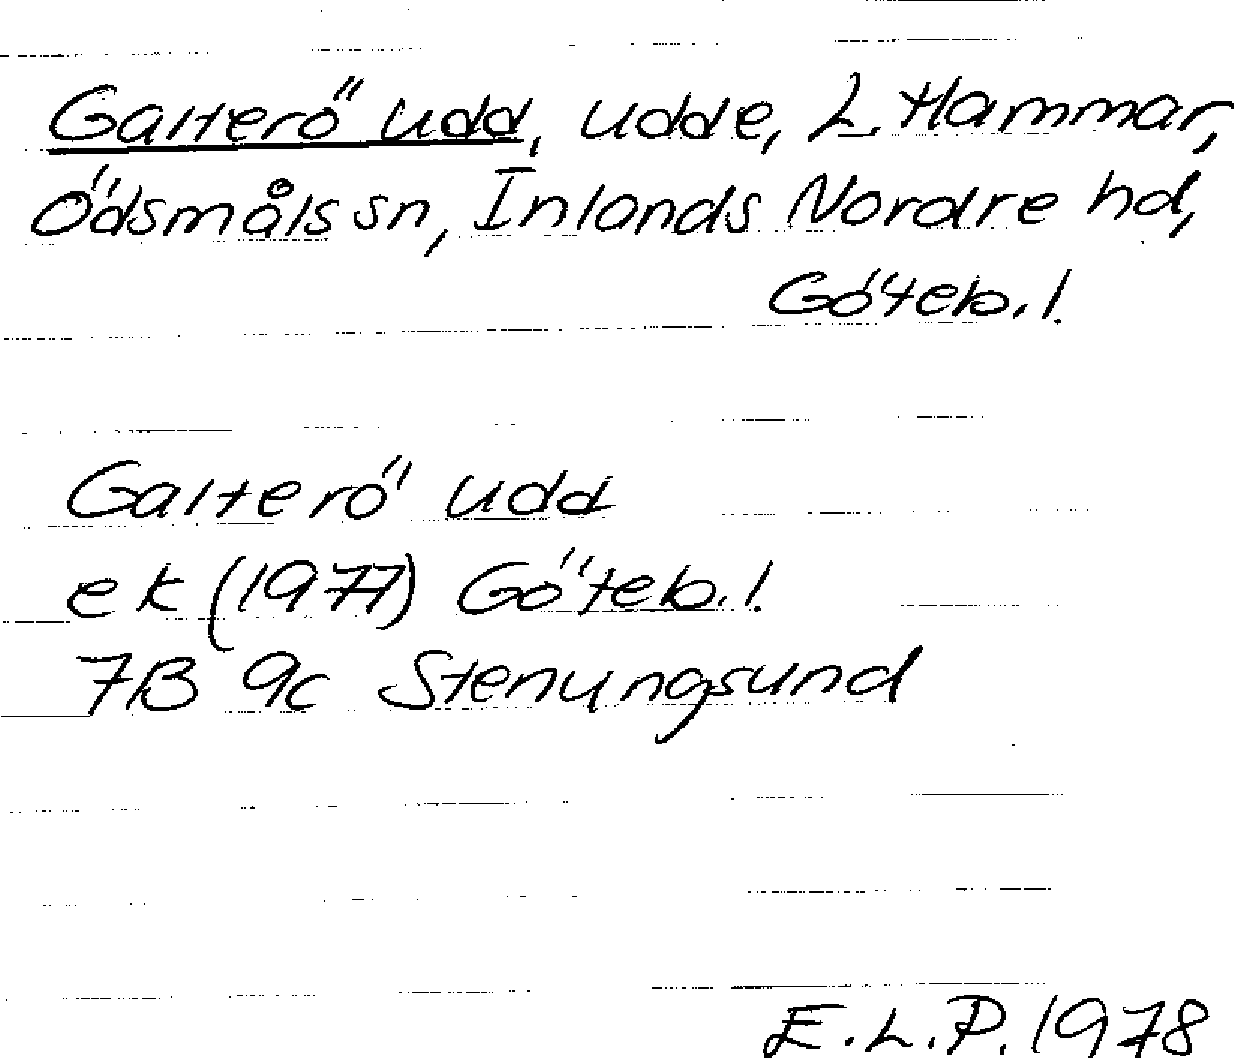 Galterö udd, udde, L. Hammar,
Ödsmåls sn, Inlands Nordre hd,
Göteb. l.
Galterö udd
ek (1977) Göteb. l.
7B 9c Stenungsund
E.L.P. 1978